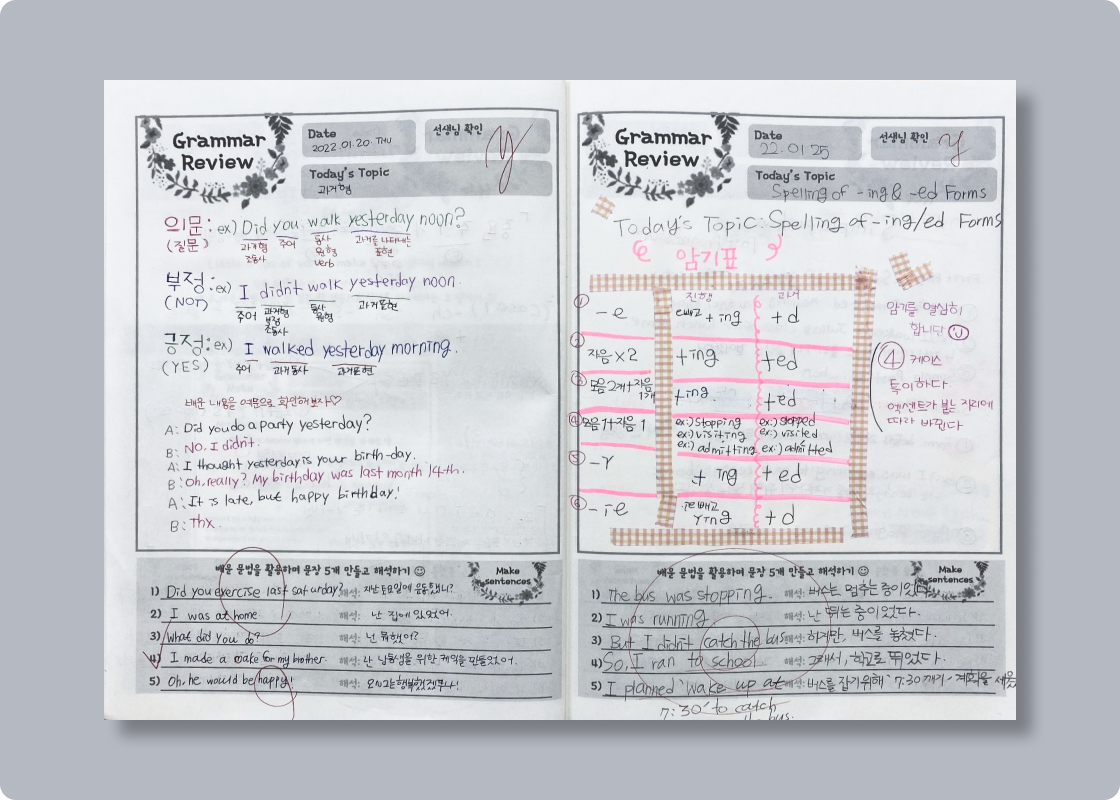 Grammar Review
Date
2022.01.20. THU
선생님 확인
Today's Topic
과거형
의문: ex) Did you walk yesterday noon?
(질문)
과거형 조동사
주어
동사 원형 verb
과거를 나타내는 표현
부정: ex) I didn't walk yesterday noon.
(NOT)
주어
과거형 부정 조동사
동사 원형
과거표현
긍정: ex) I walked yesterday morning.
(YES)
주어
과거동사
과거표현
배운 내용을 예문으로 확인해보자♡
A: Did you do a party yesterday?
B: No, I didn't.
A: I thought yesterday is your birth-day.
B: Oh, really? My birthday was last month 14-th.
A: It is late, but happy birthday!
B: Thx.
배운 문법을 활용하여 문장 5개 만들고 해석하기 ☺
Make sentences
1) Did you exercise last saturday? 해석: 지난 토요일에 운동했니?
2) I was at home 해석: 난 집에 있었어.
3) What did you do? 해석: 넌 뭐했어?
4) I made a cake for my brother. 해석: 난 남동생을 위한 케익을 만들었어.
5) Oh, he would be happy! 해석: 오, 그는 행복했겠구나!
Grammar Review
Date
22.01.25
선생님 확인
Today's Topic
Spelling of -ing & -ed Forms
Today's Topic: Spelling of -ing/ed Forms
암기표
진행
과거
① -e
e빼고 +ing
+d
② 자음×2
+ing
+ed
③ 모음2개+자음1개
+ing
+ed
④ 모음1+자음1
ex:) stopping
ex:) stopped
ex:) visiting
ex:) visited
ex:) admitting
ex:) admitted
⑤ -Y
+ing
+ed
⑥ -ie
ie빼고 ying
+d
암기를 열심히
합니단
④ 케이스
특이하다
엑센트가 붙는 자리에
따라 바뀐다
배운 문법을 활용하여 문장 5개 만들고 해석하기 ☺
Make sentences
1) The bus was stopping. 해석: 버스는 멈추는 중이었다.
2) I was running 해석: 난 뛰는 중이었다.
3) But I didn't catch the bus 해석: 하지만, 버스를 놓쳤다.
4) So, I ran to school 해석: 그래서, 학교로 뛰었다.
5) I planned 'wake up at 해석: 버스를 잡기위해 '7:30 깨기' 계획을 세웠
7:30' to catch
the bus.